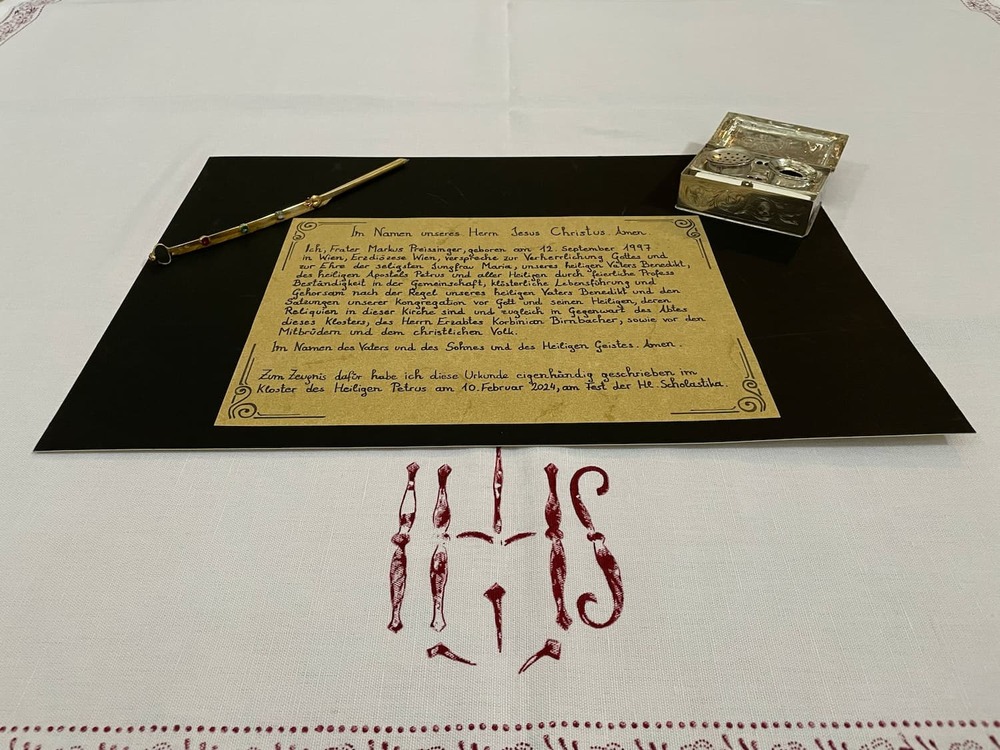 Im Namen unseres Herrn Jesus Christus. Amen.
Ich, Frater Markus Preissinger, geboren am 12. September 1997
in Wien, Erzdiözese Wien, verspreche zur Verherrlichung Gottes und
zur Ehre der seligsten Jungfrau Maria, unseres heiligen Vaters Benedikt,
des heiligen Apostels Petrus und aller Heiligen durch feierliche Profess
Beständigkeit in der Gemeinschaft, klösterliche Lebensführung und
Gehorsam nach der Regel unseres heiligen Vaters Benedikt und den
Satzungen unserer Kongregation vor Gott und seinen Heiligen, deren
Reliquien in dieser Kirche sind und zugleich in Gegenwart des Abtes
dieses Klosters, des Herrn Erzabtes Korbinian Birnbacher, sowie vor den
Mitbrüdern und dem christlichen Volk.
Im Namen des Vaters und des Sohnes und des Heiligen Geistes. Amen.
Zum Zeugnis dafür habe ich diese Urkunde eigenhändig geschrieben im
Kloster des Heiligen Petrus am 10. Februar 2024, am Fest der Hl. Scholastika.
IHS